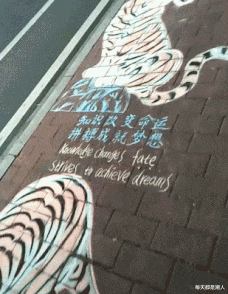 知识改变命运
拼搏成就梦想
knowledge changes fate,
strives to achieve dreams
每天都是潮人